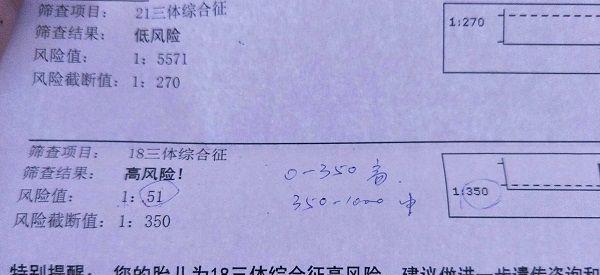 筛查项目： 21三体综合征
筛查结果： 低风险
风险值： 1: 5571
风险截断值： 1: 270
1:270
筛查项目： 18三体综合征
筛查结果： 高风险！
风险值： 1: 51
风险截断值： 1: 350
0-350 高
350-1000 中
1:350
特别提醒： 您的胎儿为18三体综合征高风险，建议做进一步遗传咨询和